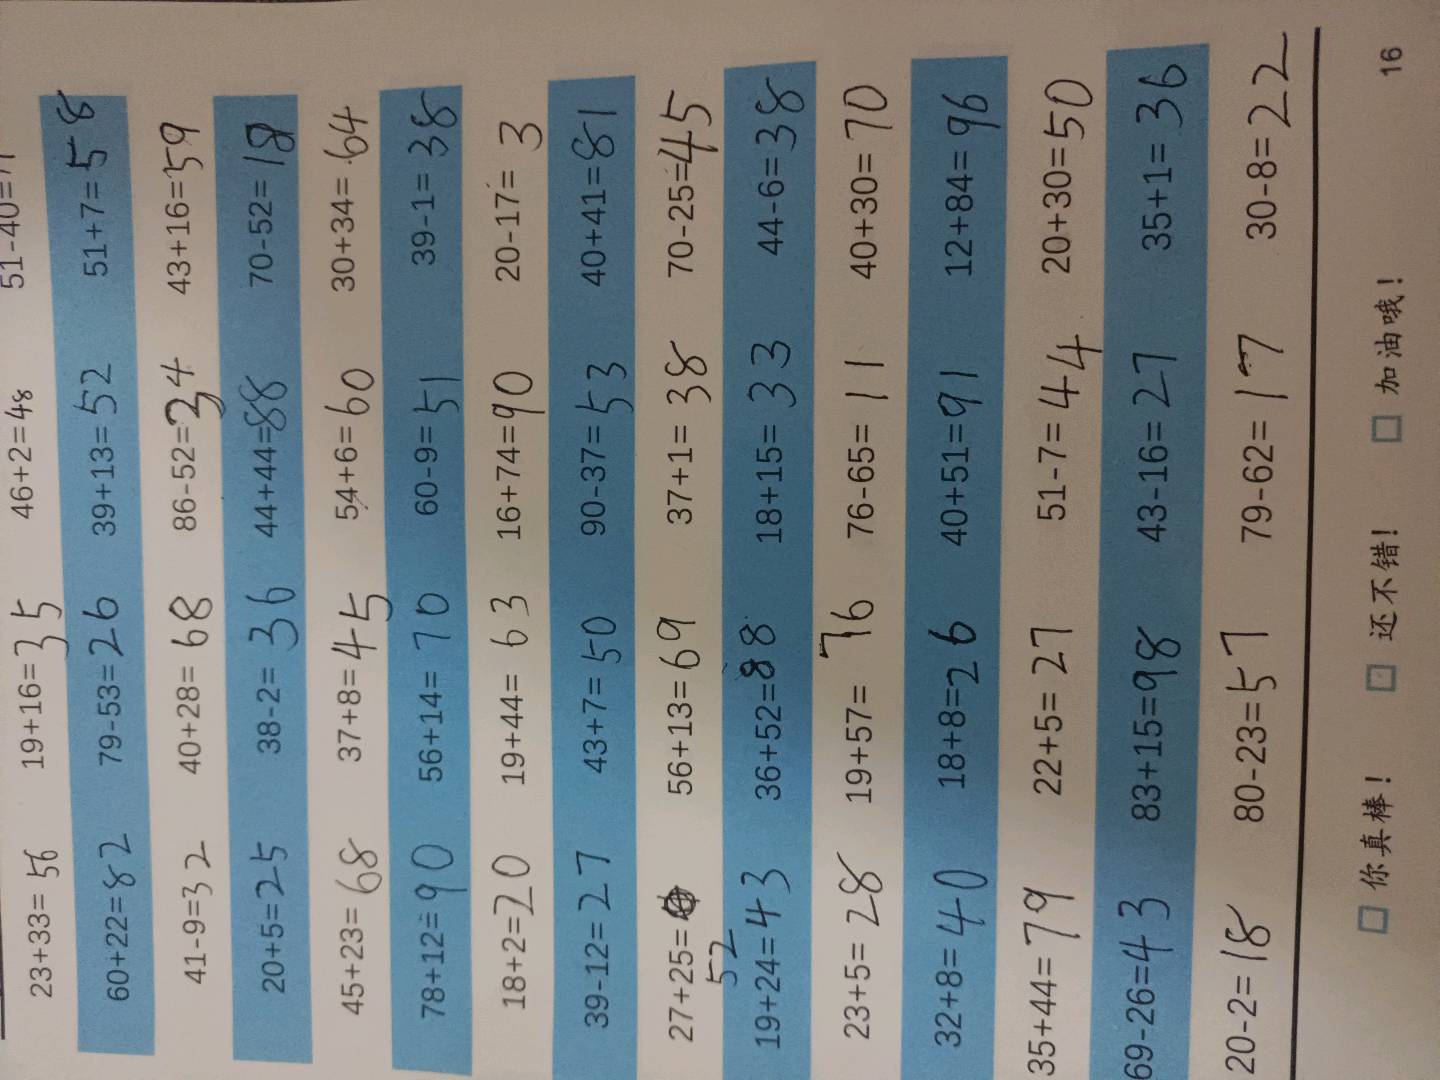 23+33=56 19+16=35 46+2=48 51-40=11
60+22=82 79-53=26 39+13=52 51+7=58
41-9=32 40+28=68 86-52=34 43+16=59
20+5=25 38-2=36 44+44=88 70-52=18
45+23=68 37+8=45 54+6=60 30+34=64
78+12=90 56+14=70 60-9=51 39-1=38
18+2=20 19+44=63 16+74=90 20-17=3
39-12=27 43+7=50 90-37=53 40+41=81
27+25=52 56+13=69 37+1=38 70-25=45
19+24=43 36+52=88 18+15=33 44-6=38
23+5=28 19+57=76 76-65=11 40+30=70
32+8=40 18+8=26 40+51=91 12+84=96
35+44=79 22+5=27 51-7=44 20+30=50
69-26=43 83+15=98 43-16=27 35+1=36
20-2=18 80-23=57 79-62=17 30-8=22
□你真棒！ □还不错！ □加油哦！
16